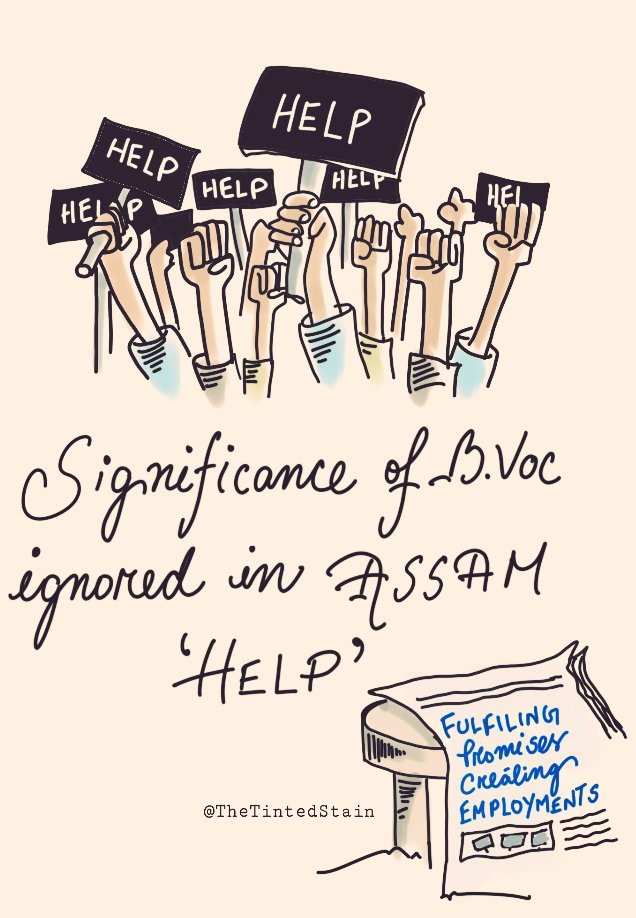 HELP
HELP
HELP
HELP
HELP
HEL
Significance of B.Voc
ignored in ASSAM
'HELP'
FULFILING
Promises
Creating
EMPLOYMENTS
@TheTintedStain